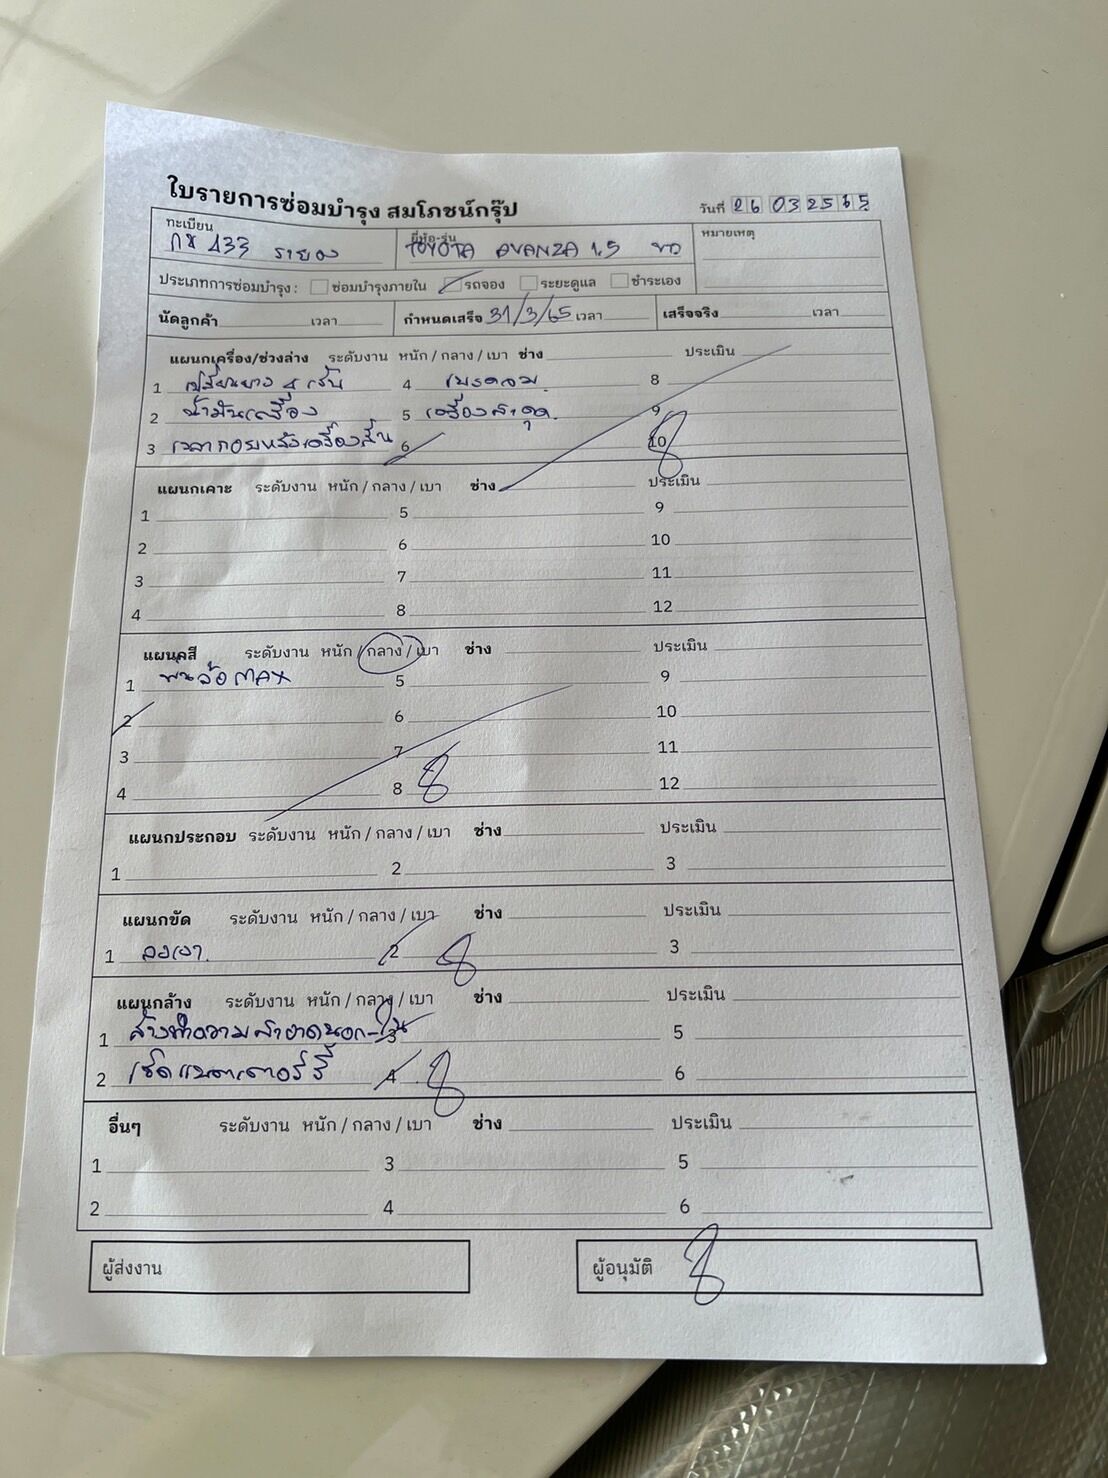 ใบรายการซ่อมบำรุง สมโภชน์กรุ๊ป
วันที่ 26 03 2565
ทะเบียน ยี่ห้อ-รุ่น หมายเหตุ
433 ระยอง TOYOTA AVANZA 1.5 ขาว
ประเภทการซ่อมบำรุง : ซ่อมบำรุงภายใน รถจอง ระยะดูแล ชำระเอง
นัดลูกค้า เวลา กำหนดเสร็จ 31/3/65 เวลา เสร็จจริง เวลา
แผนกเครื่อง/ช่วงล่าง ระดับงาน หนัก / กลาง / เบา ช่าง ประเมิน
1 เปลี่ยนยาง 4 เส้น 4 8
2 น้ำมันเครื่อง 5 เครื่องสะดุด 9
3 6 10
แผนกเคาะ ระดับงาน หนัก / กลาง / เบา ช่าง ประเมิน
1 5 9
2 6 10
3 7 11
4 8 12
แผนกสี ระดับงาน หนัก / กลาง / เบา ช่าง ประเมิน
1 พ่นล้อ MAX 5 9
2 6 10
3 7 11
4 8 12
แผนกประกอบ ระดับงาน หนัก / กลาง / เบา ช่าง ประเมิน
1 2 3
แผนกขัด ระดับงาน หนัก / กลาง / เบา ช่าง ประเมิน
1 ลงเงา 2 3
แผนกล้าง ระดับงาน หนัก / กลาง / เบา ช่าง ประเมิน
1 ล้างทำความสะอาดนอก-ใน 3 5
2 เช็คแบตเตอรี่ 4 6
อื่นๆ ระดับงาน หนัก / กลาง / เบา ช่าง ประเมิน
1 3 5
2 4 6
ผู้ส่งงาน ผู้อนุมัติ